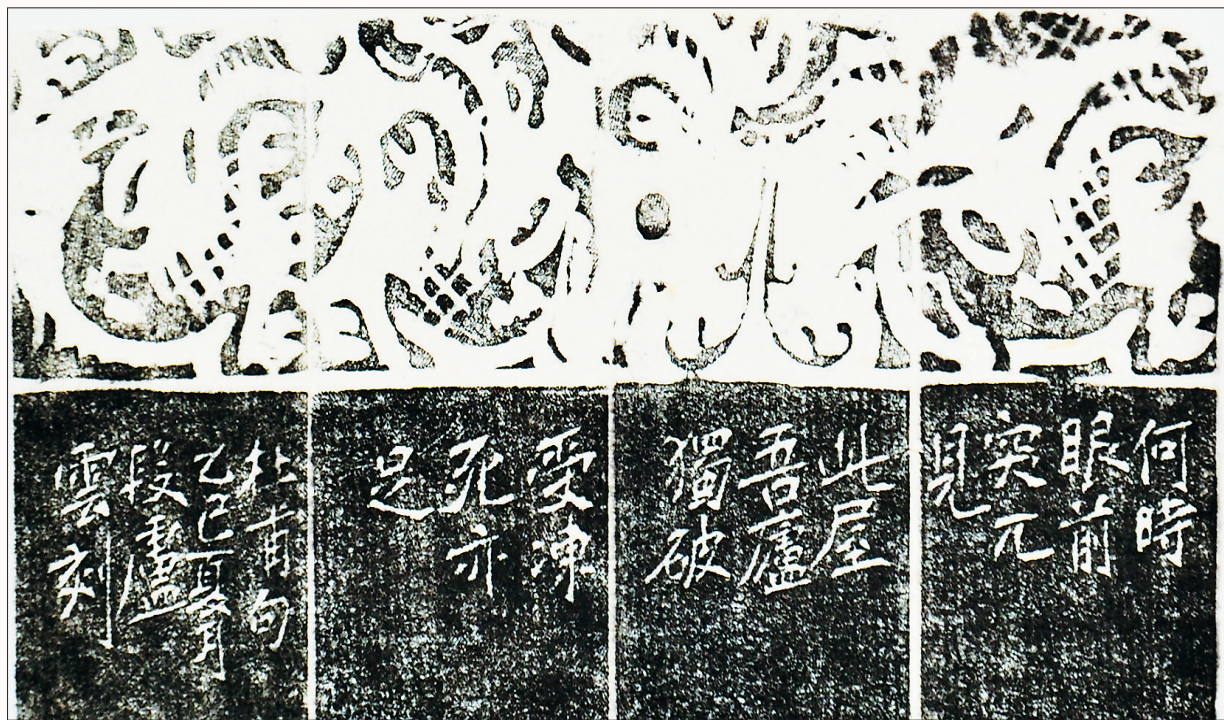 何時
眼前
突兀
見
此屋
吾廬
獨破
受凍
死亦
足
杜甫句
乙巳夏月
段廬
雲刻